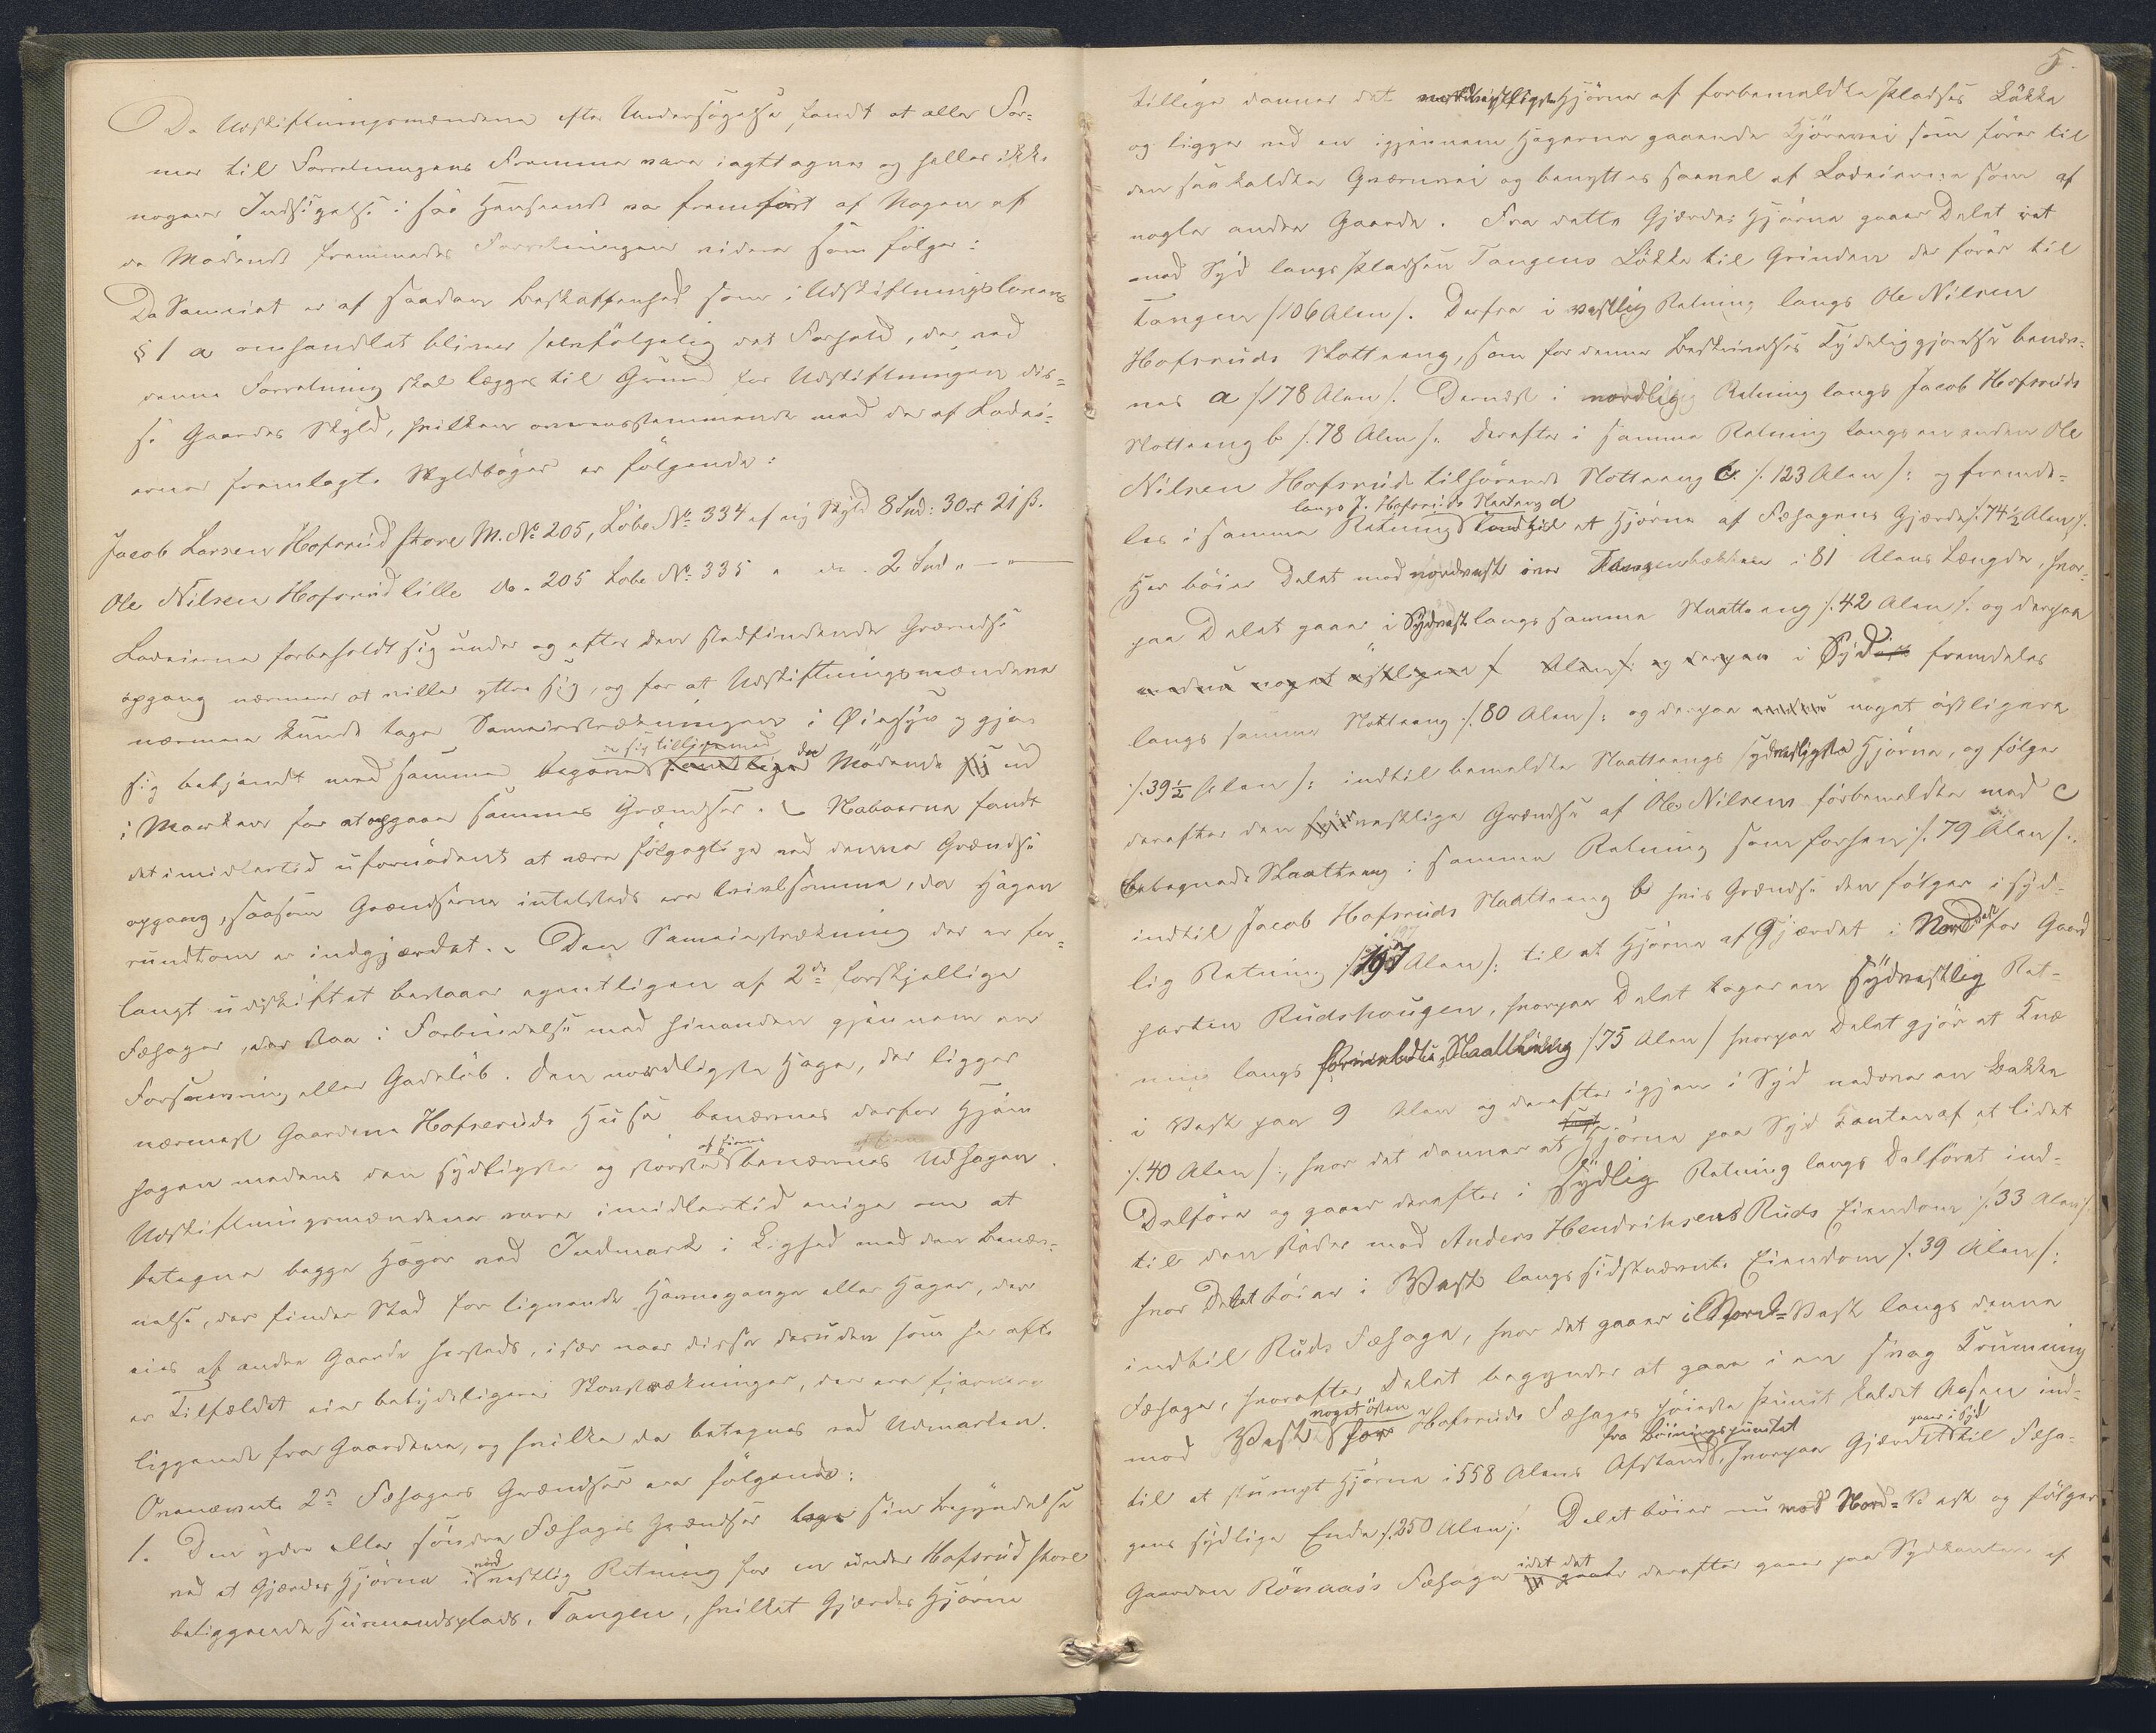 Da Udskiftningsmændene efter Undersøgelse fandt at alle For-
mer til Forretningens Fremme vare iagttagne og heller ikke
nogen Indsigelse i saa Henseende var fremført af Nogen af
de Mødende fremmedes Forretningen videre som følger:
Da Sameiet er af saadan Beskaffenhed som i Udskiftningslovens
§ 1 a omhandlet bliver selvfølgelig det Forhold, der ved
denne Forretning skal lægges til Grund for Udskiftningen dis-
se Gaardes Skyld, hvilken overensstemmende med de af Lodei-
erne fremlagte Skyldbøger er følgende:
Jacob Larsen Hofsrud store M. No 205, Løbe No 334 af ny Skyld 8 Skd: 3 ort 21 ß.
Ole Nilsen Hofsrud lille do. 205 Løbe No 335 " do. 2 Skd " — " —
Lodeierne forbeholdt sig under og efter den stedfindende Grændse
opgang nærmere at ville yttre sig, og for at Udskiftningsmændene
nærmere kunde tage Sameiestrækningen i Øiesyn og gjøre
sig bekjendt med samme begave de sig tilligemed de Mødende ud
i Marken for at opgaae sammes Grændser. Naboerne fandt
det imidlertid ufornødent at være følgagtige ved denne Grændse
opgang, saasom Grændserne intetsteds ere tvivlsomme, da Hagen
rundtom er indgjærdet. Den Sameiestrækning der er for-
langt udskiftet bestaaer egentligen af 2de forskjellige
Fæhager, der staa i Forbindelse med hinanden gjennem en
Forsnevring eller Gadeløb. Den nordligste Hage, der ligger
nærmest Gaardene Hofseruds Huse benævnes derfor Hjem
hagen medens den sydligste og største af hine benævnes Udhagen.
Udskiftningsmændene vare imidlertid enige om at
betegne begge Hager ved Indmark i Lighed med den Benæv-
nelse, der finder Sted for lignende Havnegange eller Hager, der
eies af andre Gaarde hersteds, især naar disse desuden som her ofte
er Tilfældet eier betydeligere Skovstrækninger, der ere fjernere
liggende fra Gaardene, og hvilke da betegnes ved Udmarken.
Ovennævnte 2de Fæhagers Grændser ere følgende:
1. Den ydre eller søndre Fæhages Grændser tage sin Begyndelse
ved et Gjærdes Hjørne i nordvestlig Retning for en under Hofsrud store
beliggende Husmandsplads, Tangen, hvilket Gjærdes Hjørne
5.
tillige danner det nordvestligste Hjørne af forbemeldte Pladses Løkke
og ligger ved en igjennem Hagerne gaaende Kjørevei som fører til
den saakaldte Qværnvei og benyttes saavel af Lodeierne som af
nogle andre Gaarde. Fra dette Gjærdes Hjørne gaaer Delet ret
mod Syd langs Pladsen Tangens Løkke til Grinden der fører til
Tangen /106 Alen/. Derfra i vestlig Retning langs Ole Nilsen
Hofsruds Slotteeng, som for denne Beskrivelses Tydeliggjørelse benæv-
nes a /:178 Alen/: Dernæst i nordlig Retning langs Jacob Hofsruds
Slotteeng b /:78 Alen/: derefter i samme Retning langs en anden Ole
Nilsen Hofsrud tilhørende Slotteeng c /:123 Alen/: og fremde-
les i samme Retning langs J. Hofsruds Slaateeng d til et Hjørne af Fæhagens Gjærde /:74½ Alen/:
Her bøier Delet mod nordvest over Tangenbækken i 81 Alens Længde, hvor-
paa Delet gaaer i Sydvest langs samme Slaatteeng /:42 Alen/: og derpaa
endnu noget østligere / Alen/: og derpaa i Syd fremdeles
langs samme Slotteeng /:80 Alen/: og derpaa noget østligere
/:39½ Alen/: indtil bemeldte Slaatteengs sydvestligste Hjørne, og følger
derefter den vestlige Grændse af Ole Nilsens forbemeldte med c
betegnede Slaatteeng i samme Retning som forhen /:79 Alen/:
indtil Jacob Hofsruds Slaatteeng b hvis Grændse den følger i syd-
lig Retning /:197 Alen/: til et Hjørne af Gjærdet i Nordvest for Gaard
parten Rudshougen, hvorpaa Delet tager en sydvestlig Ret-
ning langs /75 Alen/ hvorpaa Delet gjør et Knæ
i Vest paa 9 Alen og derefter igjen i Syd nedover en Bakke
/:40 Alen/:, hvor det danner et Hjørne paa Syd Kanten af et lidet
Dalføre og gaaer derefter i sydlig Retning langs Dalføret ind-
til den støder mod Anders Hendriksens Ruds Eiendom /:33 Alen/:
hvor Delet bøier i Vest langs sidstnævnte Eiendom /:39 Alen/:
indtil Ruds Fæhage, hvor det gaaer i Nord-Vest langs denne
Fæhage, hvorefter Delet begynder at gaae i en svag Krumning
mod Vest noget østen for Hofsruds Fæhages høieste Punkt kaldet Aasen ind-
til et stumpt Hjørne i 558 Alens Afstand fra Bøiningspunktet, hvorpaa Gjærdet gaaer i Syd til Fæha-
gens sydlige Ende /:250 Alen/: Delet bøier nu mod Nord-Vest og følger
Gaarden Rønaas's Fæhage idet det derefter gaaer paa Sydkanten af